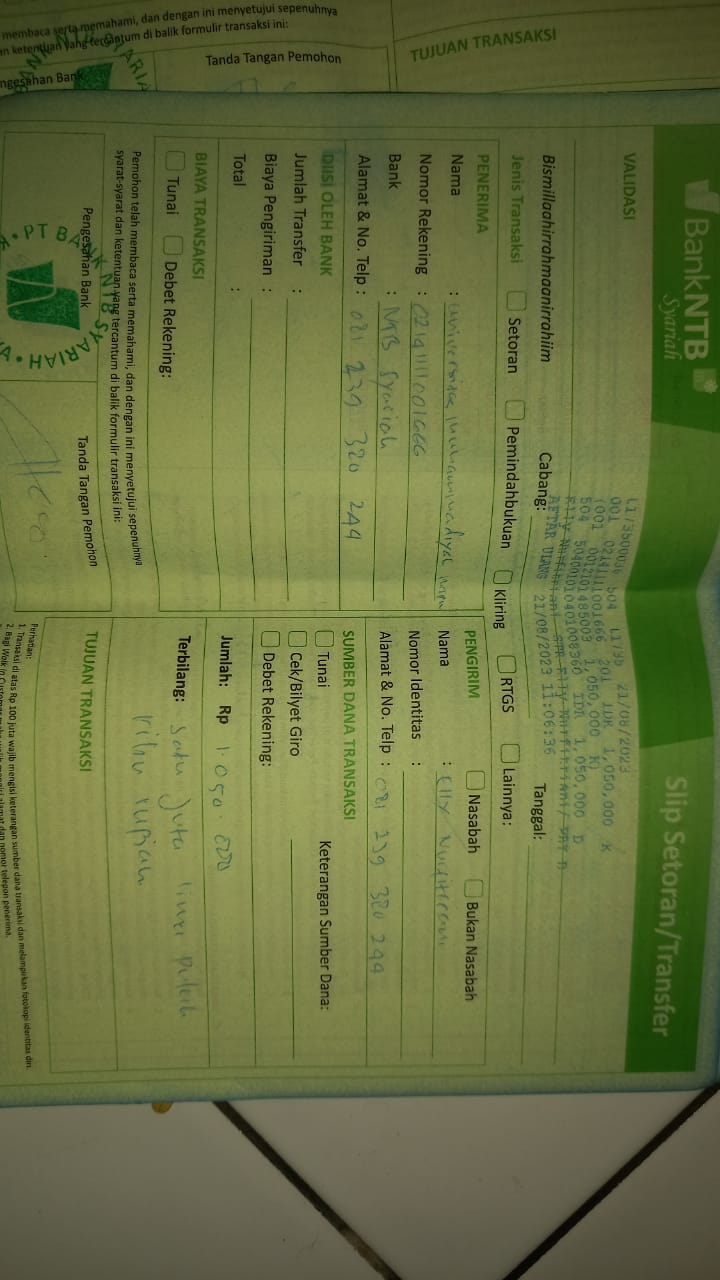 membaca serta memahami, dan dengan ini menyetujui sepenuhnya
an ketentuan yang tercantum di balik formulir transaksi ini:
ngesahan Bank
Tanda Tangan Pemohon
TUJUAN TRANSAKSI
BankNTB
Syariah
Slip Setoran/Transfer
VALIDASI
21/08/2023
001 0214111001666 201 IDR 1,050,000 K
(001 0012101485003 1,050,000 K)
504 504001010401008360 IDR 1,050,000 D
DAFTAR ULANG 21/08/2023 11:06:36
Bismillaahirrahmaanirrahiim
Cabang:
Tanggal:
Jenis Transaksi
Setoran
Pemindahbukuan
Kliring
RTGS
Lainnya:
PENERIMA
Nama : Universitas Muhammadiyah
Nomor Rekening : 0214111001666
Bank : NTB Syariah
Alamat & No. Telp : 081 239 320 244
PENGIRIM
Nasabah
Bukan Nasabah
Nama : Elly Nurfitriani
Nomor Identitas :
Alamat & No. Telp : 081 239 320 244
DIISI OLEH BANK
Jumlah Transfer :
Biaya Pengiriman :
Total :
SUMBER DANA TRANSAKSI
Tunai
Keterangan Sumber Dana:
Cek/Bilyet Giro
Debet Rekening:
BIAYA TRANSAKSI
Tunai
Debet Rekening:
Jumlah: Rp 1.050.000
Terbilang: Satu juta lima puluh
ribu rupiah
Pemohon telah membaca serta memahami, dan dengan ini menyetujui sepenuhnya
syarat-syarat dan ketentuan yang tercantum di balik formulir transaksi ini:
Pengesahan Bank
Tanda Tangan Pemohon
PT BANK NTB SYARIAH
TUJUAN TRANSAKSI
Perhatian:
1. Transaksi di atas Rp 100 juta wajib mengisi keterangan sumber dana transaksi dan melampirkan fotokopi identitas diri.